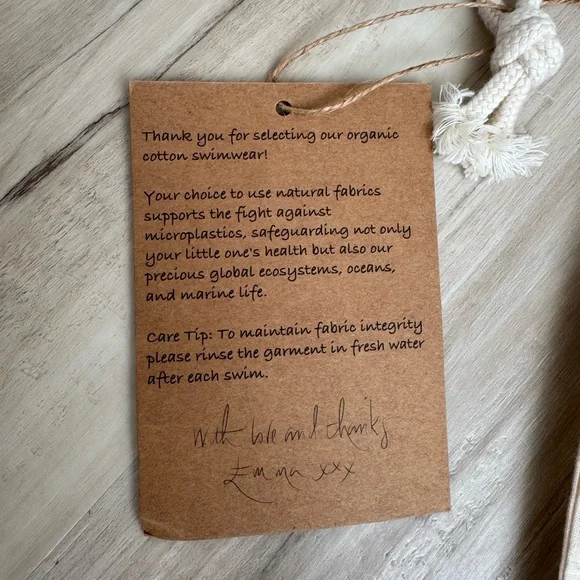 Thank you for selecting our organic
cotton swimwear!
Your choice to use natural fabrics
supports the fight against
microplastics, safeguarding not only
your little one's health but also our
precious global ecosystems, oceans,
and marine life.
Care Tip: To maintain fabric integrity
please rinse the garment in fresh water
after each swim.
With love and thanks
Emma xxx